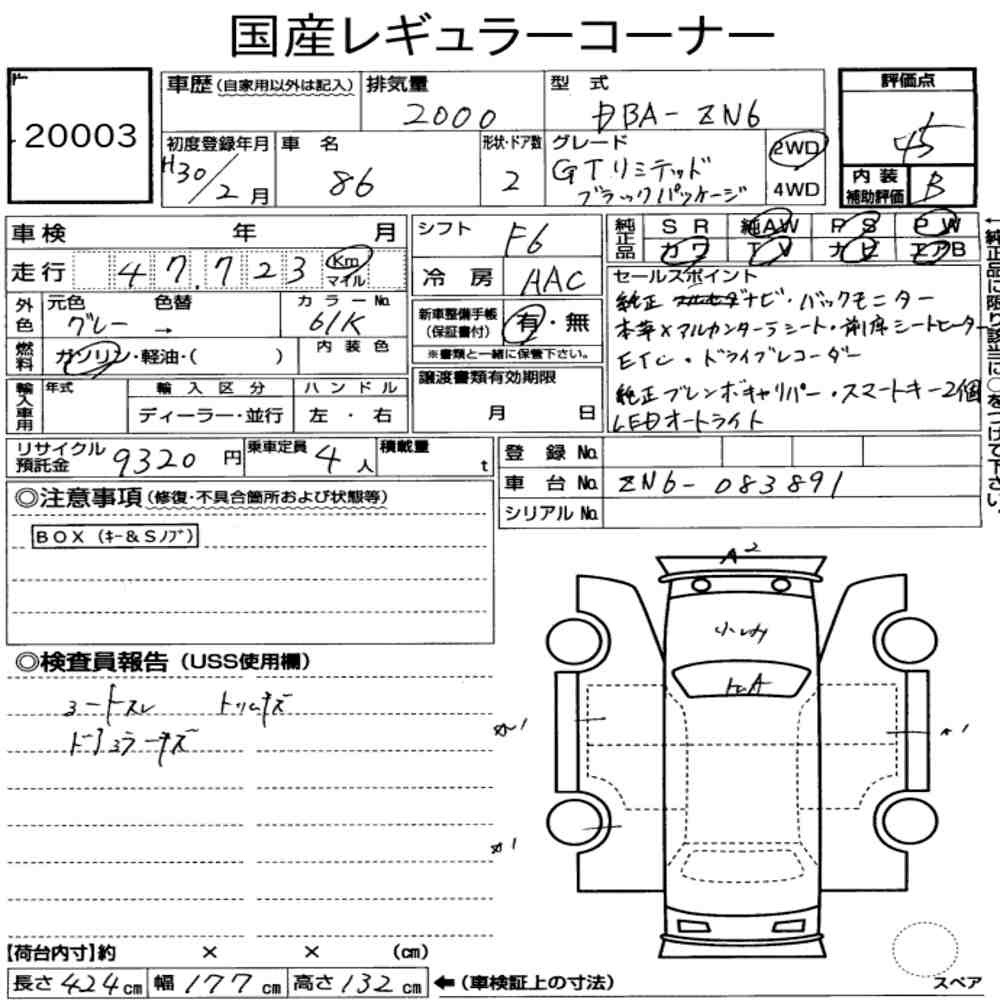 国産レギュラーコーナー
20003
車歴(自家用以外は記入)
排気量
2000
型式
DBA-ZN6
評価点
4.5
初度登録年月
H30/2月
車名
86
形状・ドア数
2
グレード
GTリミテッド
ブラックパッケージ
2WD
4WD
内装
補助評価
B
車検 年 月
走行 47,723 Km
マイル
シフト F6
冷房 AAC
純正品
SR 純AW PS PW
カワ TV ナビ エアB
外色
元色 色替 カラーNo.
グレー → 61K
燃料
ガソリン・軽油・( )
内装色
新車整備手帳
(保証書付)
有・無
※書類と一緒に保管下さい。
セールスポイント
純正 ナビ・バックモニター
本革×アルカンターラシート・前席シートヒーター
ETC・ドライブレコーダー
純正ブレンボキャリパー・スマートキー2個
LEDオートライト
←純正品に限り該当に○をつけて下さい。
輸入車用
年式 輸入区分 ハンドル
ディーラー・並行 左・右
譲渡書類有効期限
月 日
リサイクル
預託金
9320円
乗車定員 4人
積載量 t
登録No.
車台No. ZN6-083891
シリアルNo.
◎注意事項(修復・不具合箇所および状態等)
BOX(キー&Sノブ)
◎検査員報告(USS使用欄)
コートスレ トリムキズ
ドアミラーキズ
A2
トレA
【荷台内寸】約 × × (cm)
長さ424cm 幅177cm 高さ132cm ←(車検証上の寸法)
スペア